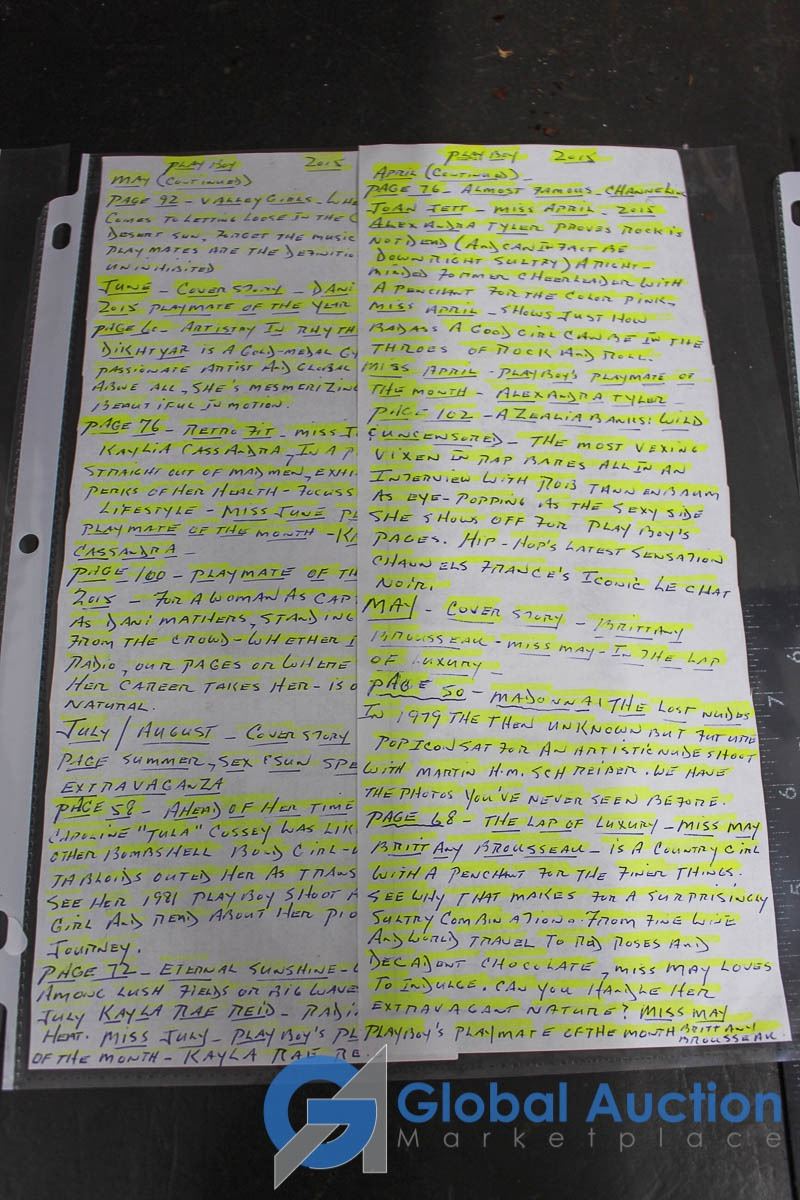 PLAYBOY 2015
MAY (CONTINUED)
PAGE 92 - VALLEY GIRLS - WHE
COMES TO LETTING LOOSE IN THE
DESERT SUN, FORGET THE MUSIC
PLAYMATES ARE THE DEFINITIO
UNINHIBITED
JUNE - COVER STORY - DANI
2015 PLAYMATE OF THE YEAR
PAGE 60 - ARTISTRY IN RHYTH
DIKHTYAR IS A GOLD-MEDAL GY
PASSIONATE ARTIST AND GLOBAL
ABOVE ALL, SHE'S MESMERIZING
BEAUTIFUL IN MOTION.
PAGE 76 - RETRO FIT - MISS J
KAYLIA CASSANDRA, IN A P
STRAIGHT OUT OF MADMEN, EXHI
PERKS OF HER HEALTH-FOCUSS
LIFESTYLE - MISS JUNE PL
PLAYMATE OF THE MONTH - K
CASSANDRA -
PAGE 100 - PLAYMATE OF TH
2015 - FOR A WOMAN AS CAP
AS DANI MATHERS, STANDING
FROM THE CROWD - WHETHER I
RADIO, OUR PAGES OR WHERE
HER CAREER TAKES HER - IS O
NATURAL.
JULY / AUGUST - COVER STORY
PAGE SUMMER, SEX & SUN SPE
EXTRAVAGANZA
PAGE 58 - AHEAD OF HER TIME
CAROLINE "TULA" COSSEY WAS LIK
OTHER BOMBSHELL BOND GIRL - U
TABLOIDS OUTED HER AS TRANS
SEE HER 1981 PLAYBOY SHOOT A
GIRL AND READ ABOUT HER PIO
JOURNEY.
PAGE 72 - ETERNAL SUNSHINE -
AMONG LUSH FIELDS OR BIG WAVE
JULY KAYLA RAE REID - RADI
HEAT. MISS JULY - PLAYBOY'S PL
OF THE MONTH - KAYLA RAE RE
PLAYBOY 2015
APRIL (CONTINUED) -
PAGE 76 - ALMOST FAMOUS - CHANNELIN
JOAN JETT - MISS APRIL - 2015
ALEXANDRA TYLER PROVES ROCK IS
NOT DEAD (AND CAN IN FACT BE
DOWNRIGHT SULTRY) A RIGHT-
MINDED FORMER CHEERLEADER WITH
A PENCHANT FOR THE COLOR PINK-
MISS APRIL - SHOWS JUST HOW
BADASS A GOOD GIRL CAN BE IN THE
THROES OF ROCK AND ROLL.
MISS APRIL - PLAYBOY'S PLAYMATE OF
THE MONTH - ALEXANDRA TYLER -
PAGE 102 - AZEALIA BANKS: WILD
& UNCENSORED - THE MOST VEXING
VIXEN IN RAP BARES ALL IN AN
INTERVIEW WITH ROB TANNENBAUM
AS EYE-POPPING AS THE SEXY SIDE
SHE SHOWS OFF FOR PLAYBOY'S
PAGES. HIP-HOP'S LATEST SENSATION
CHANNELS FRANCE'S ICONIC LE CHAT
NOIR.
MAY - COVER STORY - BRITTANY
BROUSSEAU - MISS MAY - IN THE LAP
OF LUXURY -
PAGE 50 - MADONNA! THE LOST NUDES
IN 1979 THE THEN UNKNOWN BUT FUTURE
POP ICON SAT FOR AN ARTISTIC NUDE SHOOT
WITH MARTIN H.M. SCHREIBER. WE HAVE
THE PHOTOS YOU'VE NEVER SEEN BEFORE.
PAGE 68 - THE LAP OF LUXURY - MISS MAY
BRITTANY BROUSSEAU - IS A COUNTRY GIRL
WITH A PENCHANT FOR THE FINER THINGS.
SEE WHY THAT MAKES FOR A SURPRISINGLY
SULTRY COMBINATION. FROM FINE WINE
AND WORLD TRAVEL TO RED ROSES AND
DECADENT CHOCOLATE, MISS MAY LOVES
TO INDULGE. CAN YOU HANDLE HER
EXTRAVAGANT NATURE? MISS MAY
PLAYBOY'S PLAYMATE OF THE MONTH BRITTANY
BROUSSEAU.
7
6
5
Global Auction
Marketplace